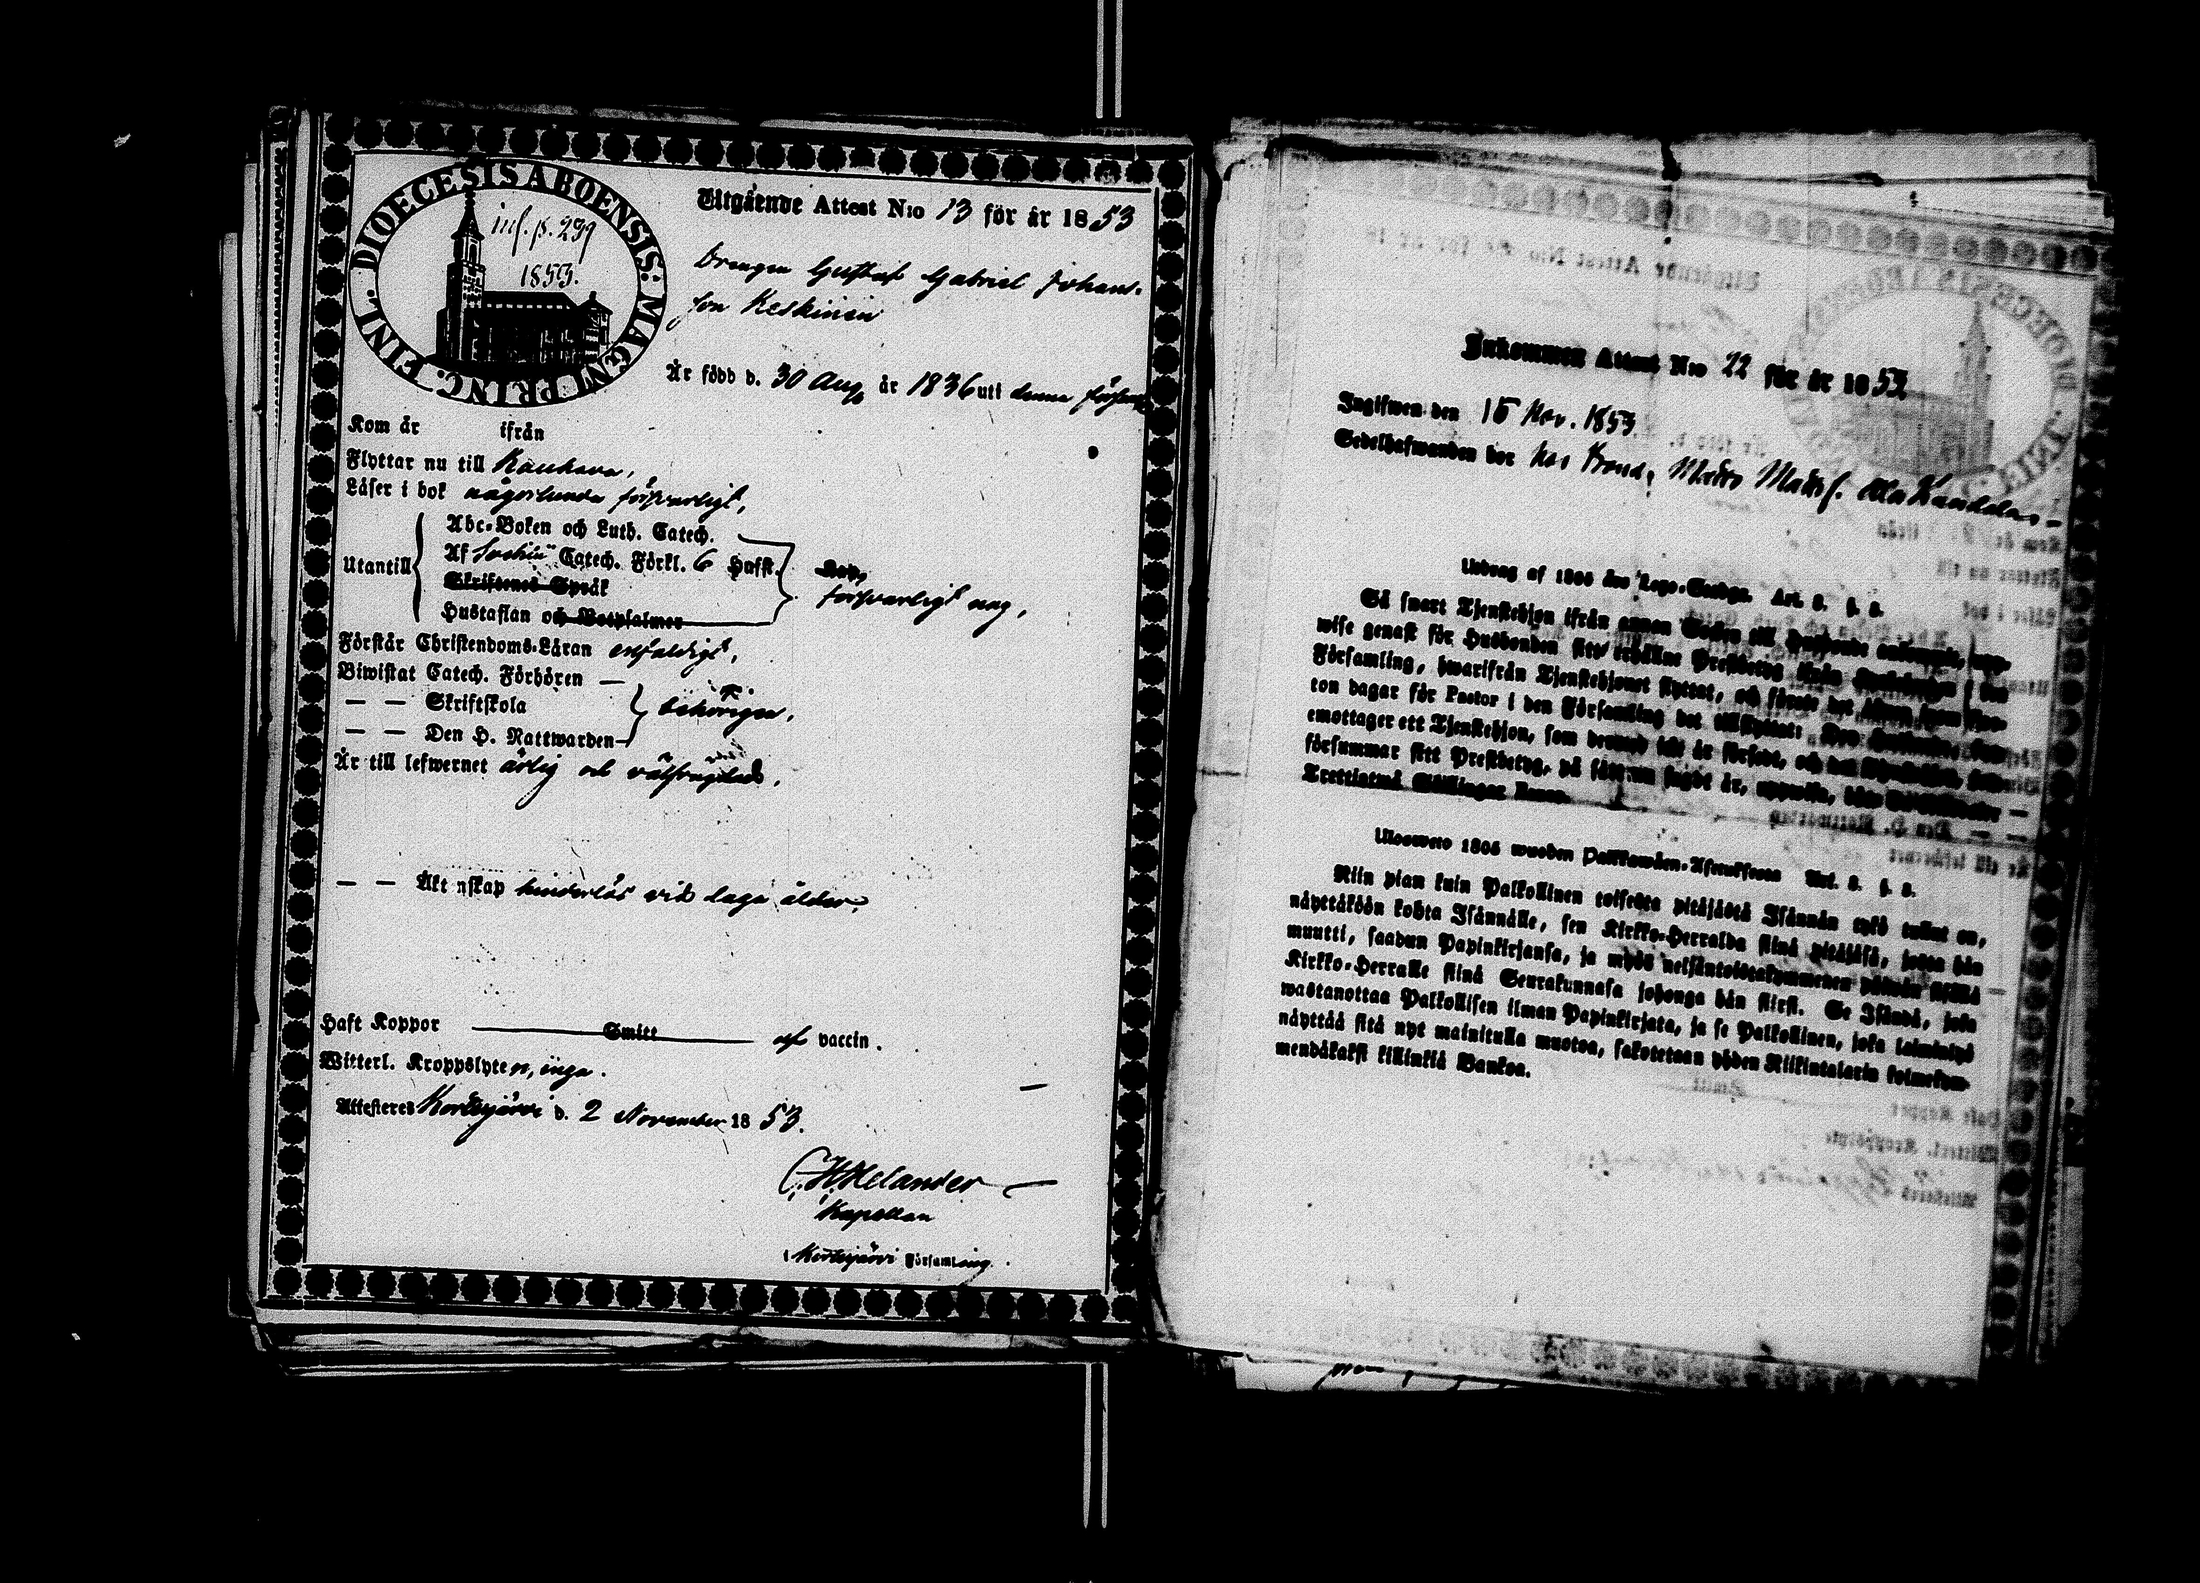 DIOECESIS ABOENSIS: MAGNI PRINC. FINL.
inf. p. 299
1853.
Utgående Attest N:o 13 för år 1853
Drengen Gustaf Gabriel Johans-
son Keskinen
Är född d. 30 Aug. år 1836 uti denna förs
Kom år ifrån
Flyttar nu till Kauhava,
Läser i bok någorlunda försvarligt,
Utantill
Abc-Boken och Luth. Catech.
Af Catech. Förkl. 6 Hufst.
Skriftenes Språk
Hustaflan och Botpsalmer
försvarligt nog,
Förstår Christendoms-Läran enfaldigt,
Biwistat Catech. Förhören —
— — Skriftskola
— — Den H. Nattwarden
behörigen,
Är till lefwernet ärlig och välfrejdad,
— — Äkt nskap hinderlös vid laga ålder,
Haft Koppor Smitt af vaccin.
Witterl. Kroppslyten, inga.
Attesteras Kortesjärvi d. 2 November 1853.
C. H. Helander
Kapellan
i Kortesjärvi Församling.
Inkommen Attest N:o 22 för år 1853
Ingifwen den 15 Nov. 1853
Sedelhafwanden bor hos Bond. Matts Matts.
Utdrag af 1805 års Lego-Stadga. Art. 2. §. 2.
Så snart Tjenstehjon ifrån annan Socken till Husbonde ankommit, upp-
wise genast för Husbonden sitt erhållne Prestbetyg ifrån den
Församling, hwarifrån Tjenstehjonet flyttat, och förete det inom fjor-
ton dagar för Pastor i den Församling det tillflyttat: Den Husbonde, som
emottager ett Tjenstehjon, som derwid ej är försedt, och det Tjenstehjon, som
försummar sitt Prestbetyg, på sätt nu sagdt är, uppwisa, böte
Trettiotwå Skillingar Banco.
Uloswero 1805 wuoden Palkkawäen-Asetuksesta Art. 2. §. 2.
Niin pian kuin Palkollinen toisesta pitäjästä Isännän tykö tullut on,
näyttäköön kohta Isännälle, sen Kirkko-Herralda siinä pitäjäsä, josta hän
muutti, saadun Papinkirjansa, ja myös neljäntoistakymmenen päiwän sisällä
Kirkko-Herralle siinä Seurakunnasa johonga hän siirsi. Se Isändä, joka
wastanottaa Palkollisen ilman Papinkirjata, ja se Palkollinen, joka laiminlyö
näyttää sitä nyt mainitulla muotoa, sakotetaan yhden Riikintalarin kolmekym-
mendäkaksi killinkiä Bankoa.